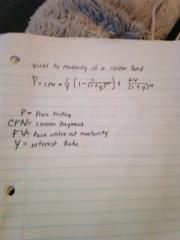 yield to maturity of a coupon bond
P = CPN × 1/y (1 - 1/(1+y)^N) + FV/(1+y)^N
P = Price today
CPN = coupon payment
FV = Face value at maturity
y = interest Rate